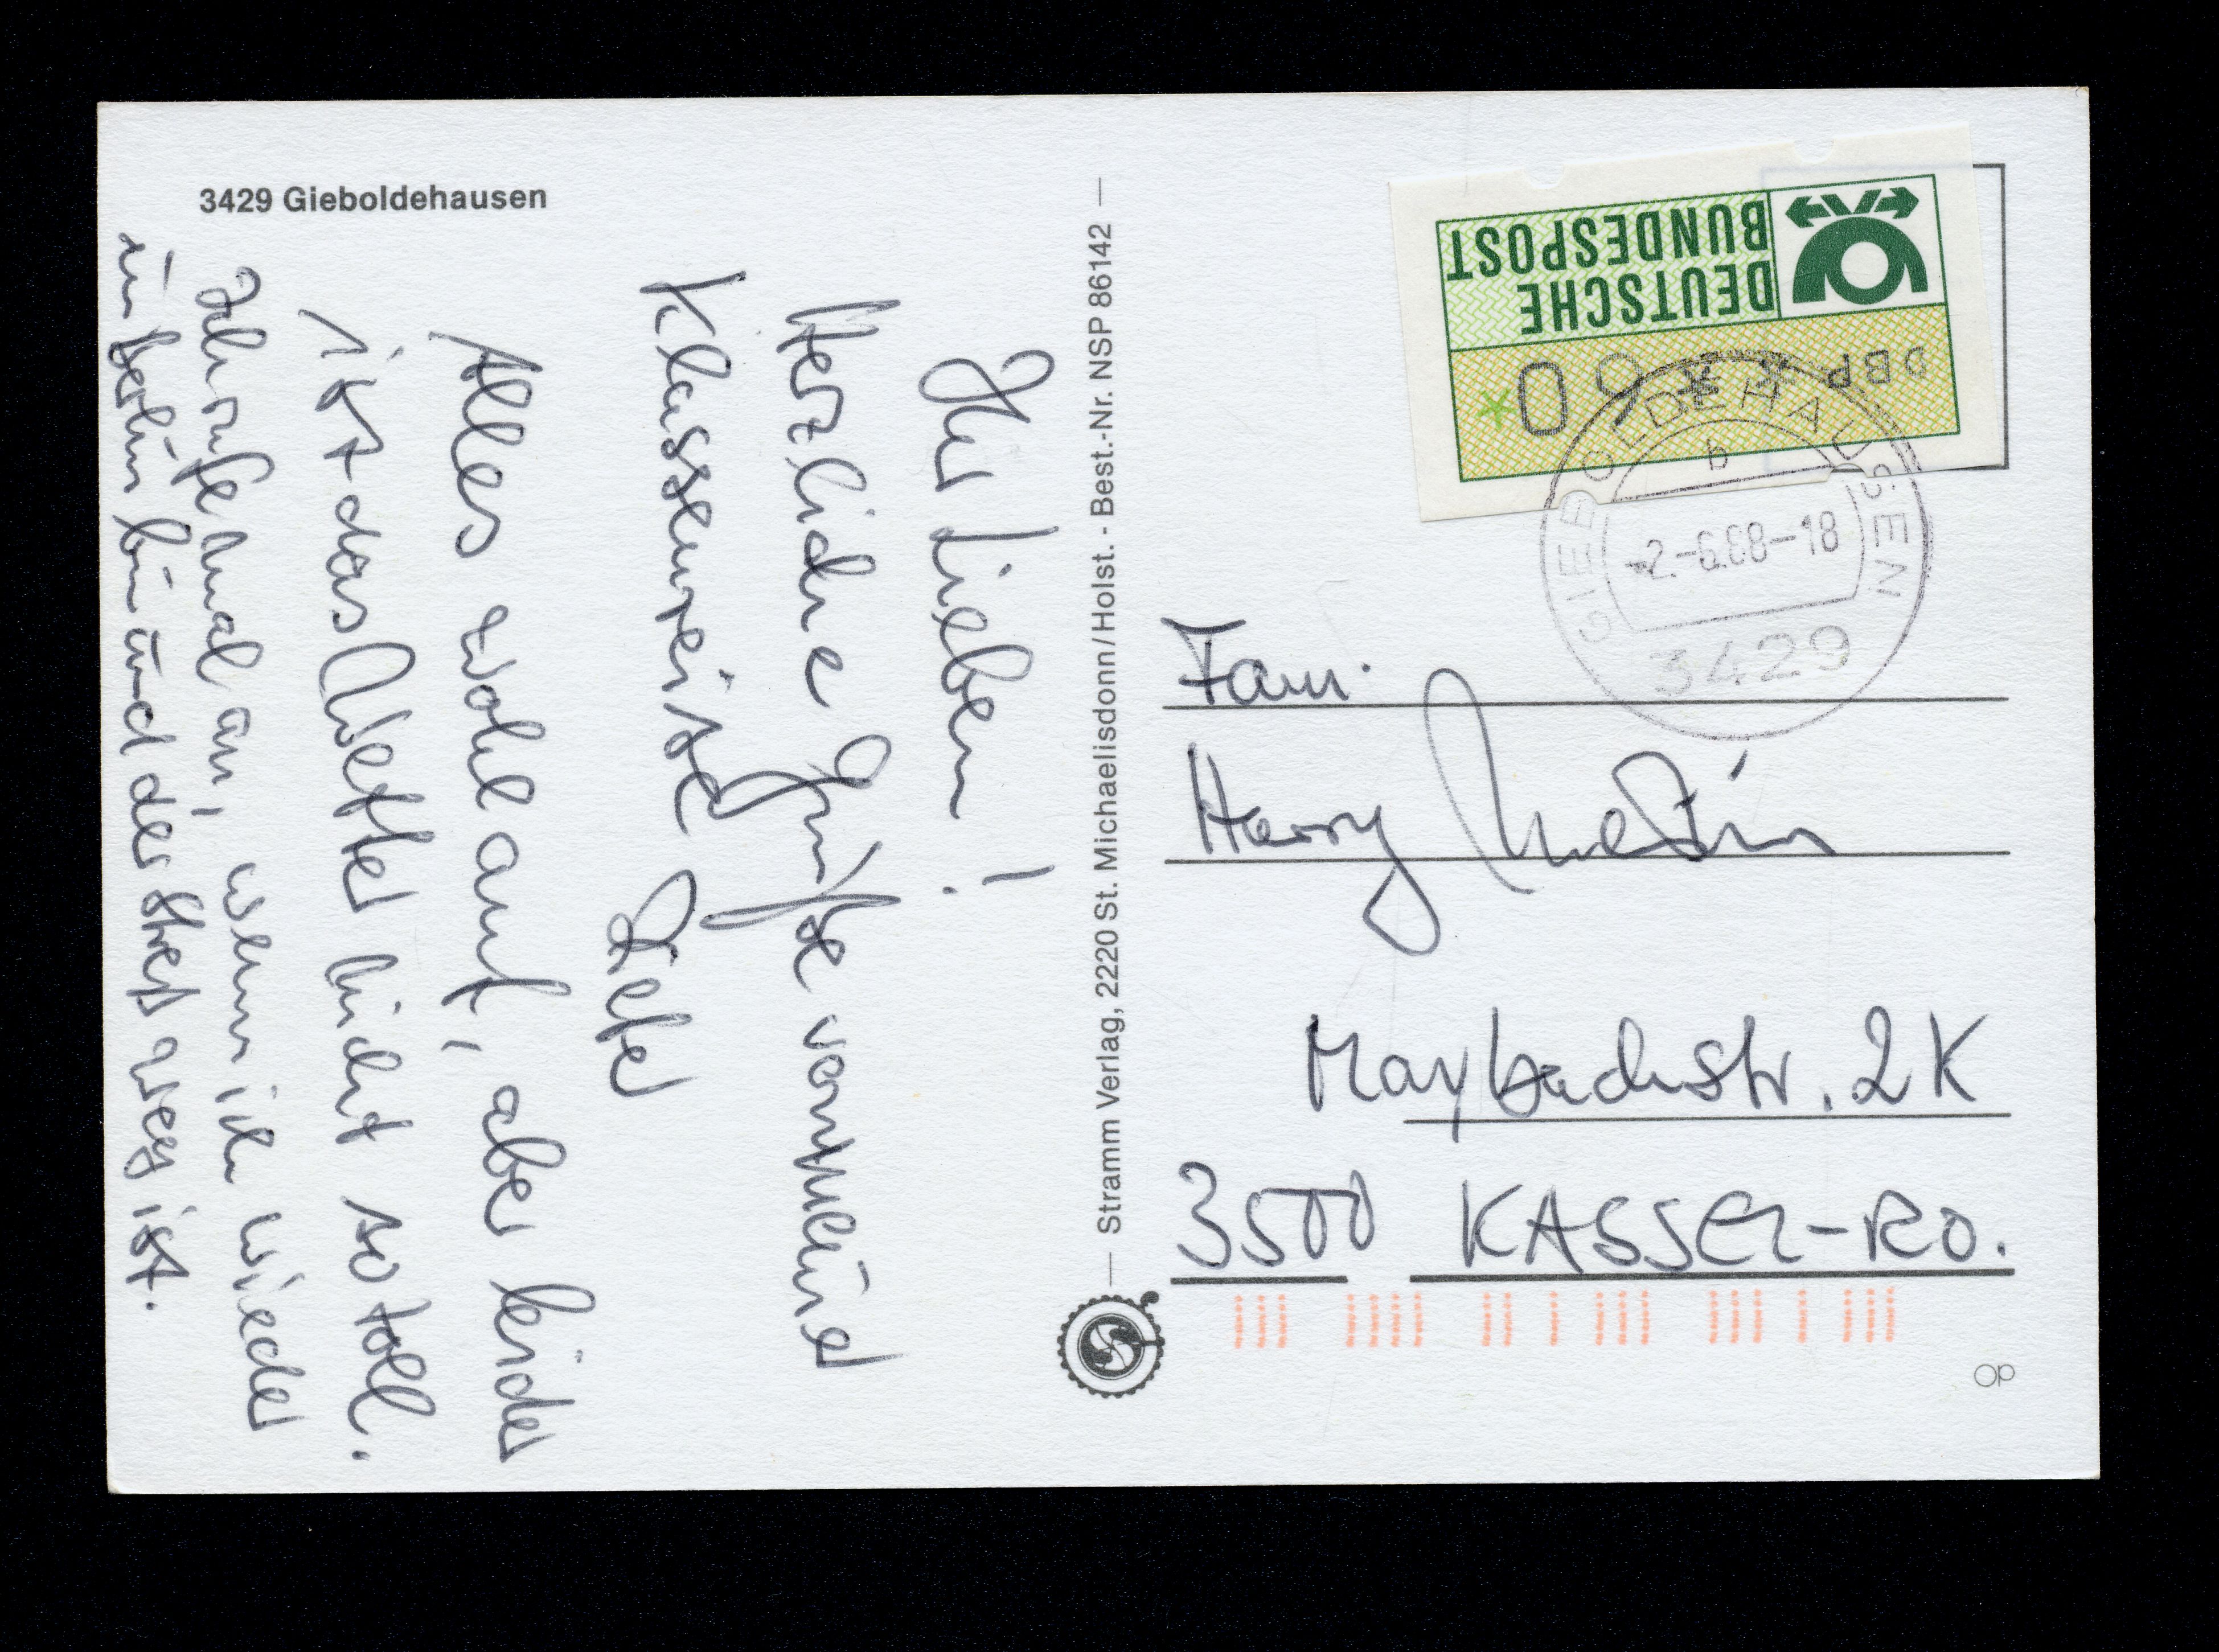 3429 Gieboldehausen
Ihr Lieben!
Herzliche Grüße von meiner
Klassenreise
Alles wohlauf, aber leider
ist das Wetter nicht so toll.
Ich rufe mal an, wenn ich wieder
in Berlin bin und der Streß weg ist.
Stramm Verlag, 2220 St. Michaelisdonn/Holst. - Best.-Nr. NSP 86142
DEUTSCHE
BUNDESPOST
DBP
GIEBOLDEHAUSEN
b
-2.-6.88-18
3429
Fam.
Harry
Maybachstr. 2K
3500 KASSEL-RO.